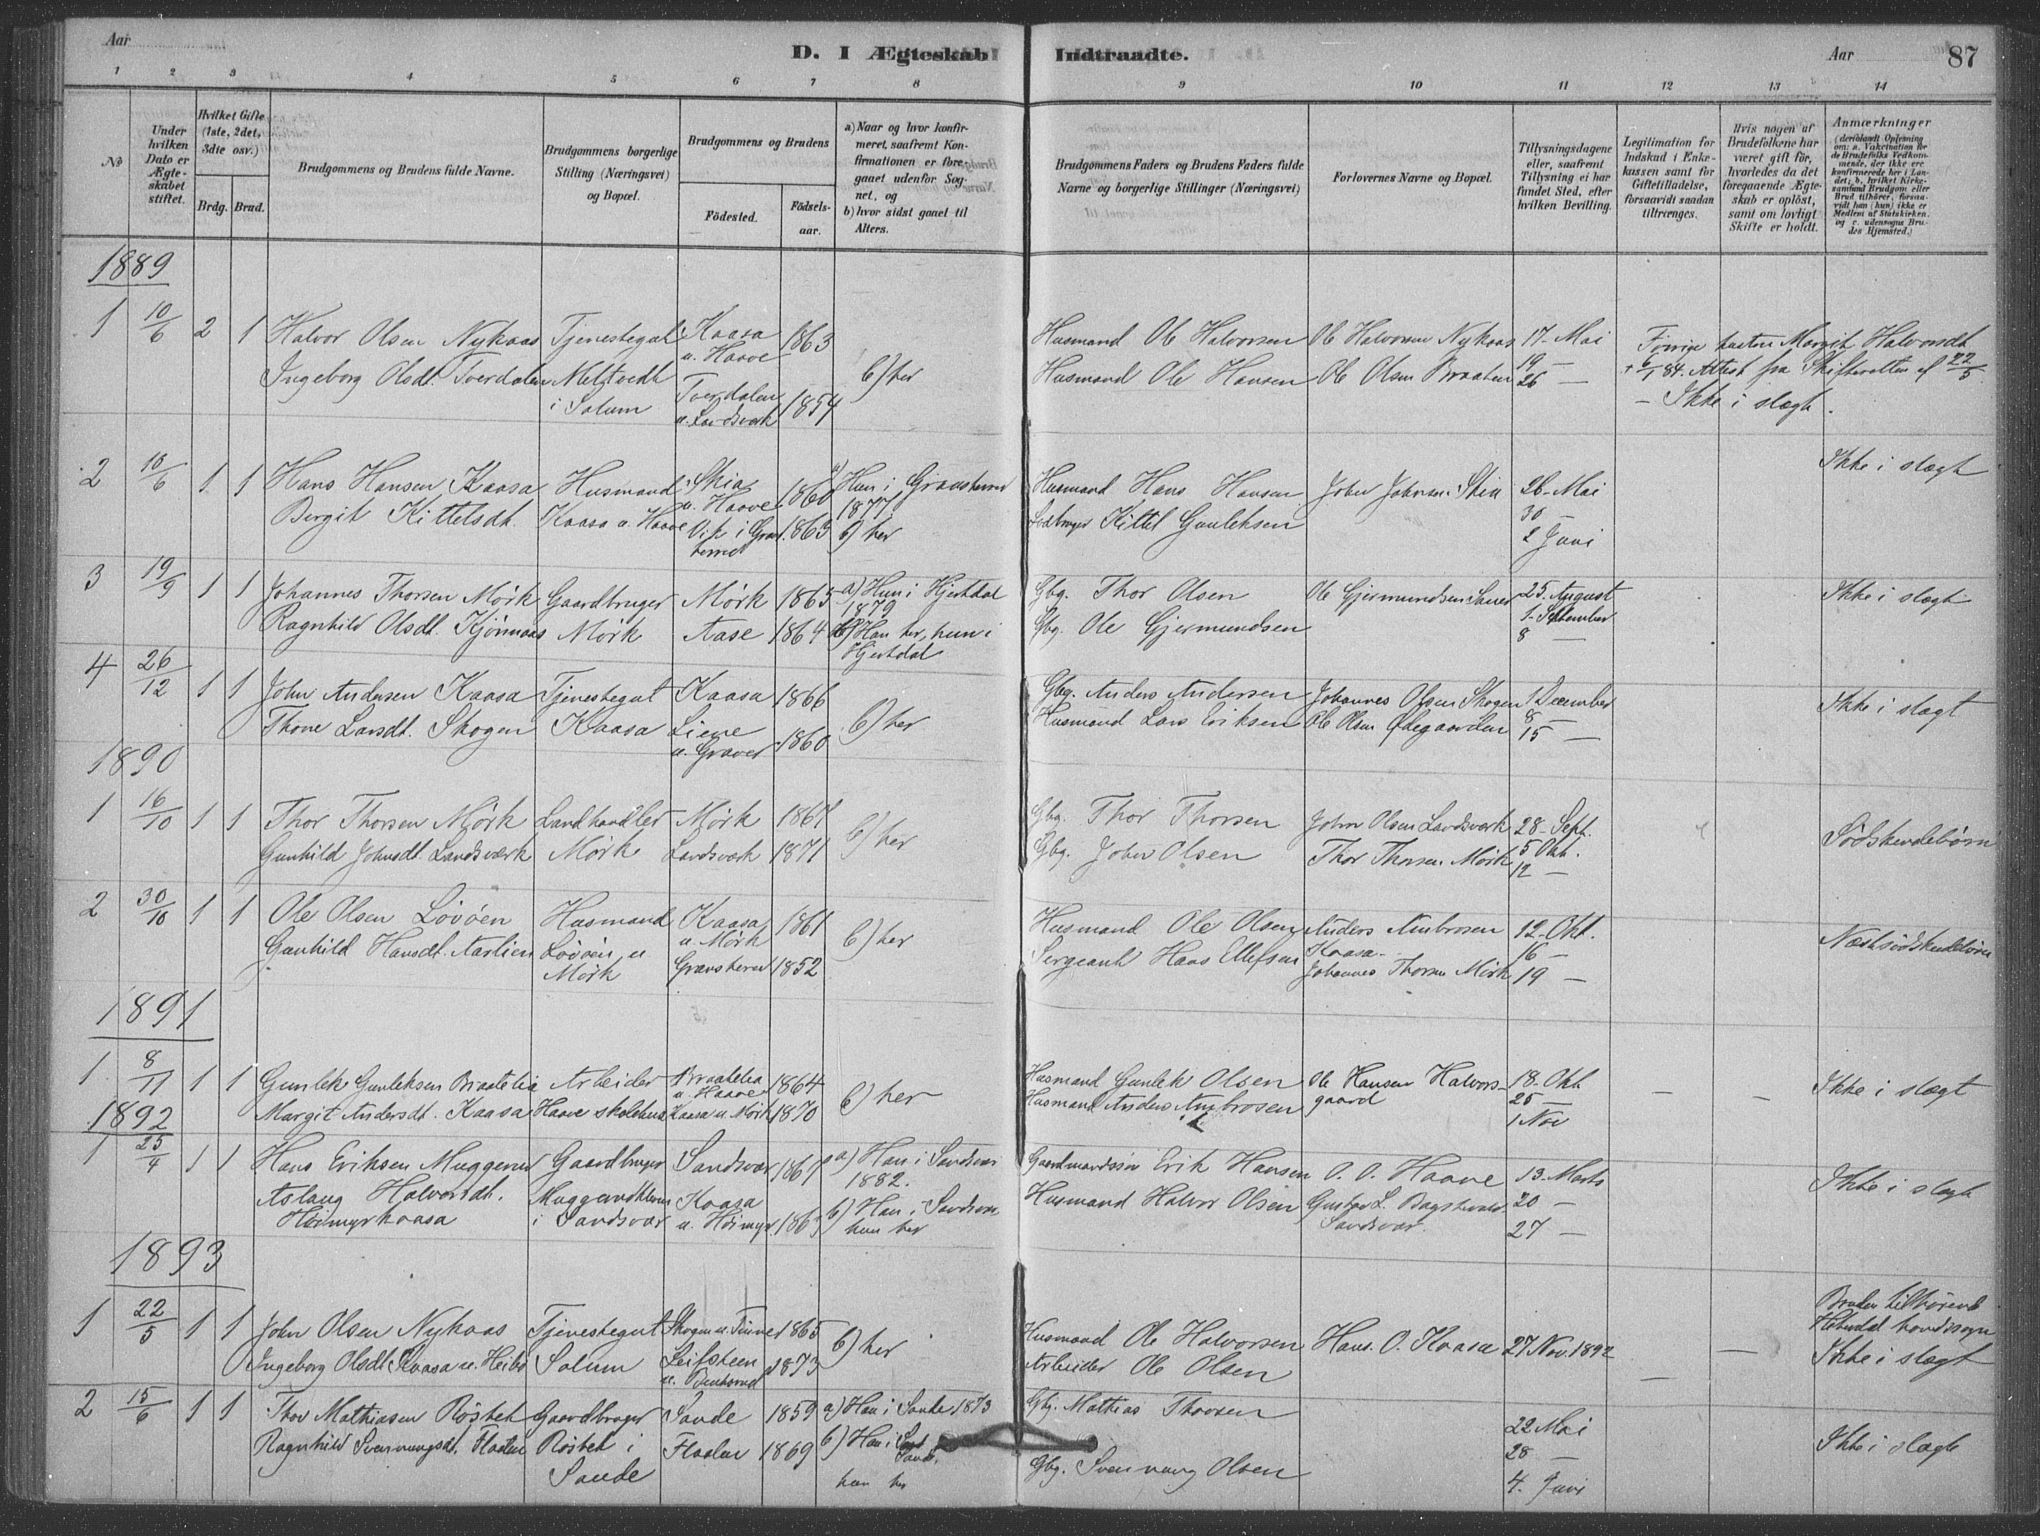 Aar
D. I Ægteskab Indtraadte.
Aar
87
1 2 3 4 5 6 7 8 9 10 11 12 13 14
No
Under hvilken Dato er Ægteskabet stiftet.
Hvilket Gifte (1ste, 2det, 3die osv.)
Brdg. Brud.
Brudgommens og Brudens fulde Navne.
Brudgommens borgerlige Stilling (Næringsvei) og Bopæl.
Brudgommens og Brudens
Födested.
Födselsaar.
a) Naar og hvor konfirmeret, saafremt Konfirmationen er foregaaet udenfor Sognet, og
b) hvor sidst gaaet til Alters.
Brudgommens Faders og Brudens Faders fulde Navne og borgerlige Stillinger (Næringsvei)
Forlovernes Navne og Bopæl.
Tillysningsdagene eller, saafremt Tillysning ei har fundet Sted, efter hvilken Bevilling.
Legitimation for Indskud i Enkekassen samt for Giftetilladelse, forsaavidt saadan tiltrænges.
Hvis nogen af Brudefolkene har været gift för, hvorledes da det foregaaende Ægteskab er oplöst, samt om lovligt Skifte er holdt.
Anmærkninger
(deriblandt Oplysning om: a. Vakcination for de Brudefolks Vedkommende, der ikke ere konfirmerede her i Landet; b. hvilket Kirkesamfund Brudgom eller Brud tilhører, forsaavidt han (hun) ikke er Medlem af Statskirken, og c. udensogns Brudes Hjemsted.)
1889
1 10/6 2 1 Halvor Olsen Nykaas Tjenestegut Kaasa u. Haave 1863
Husmand Ole Halvorsen Ole Halvorsen Nykaas 17. Mai
Forrige hustru Margit Halvorsdt.
Ingeborg Olsdt. Tverdalen i Solum Tverdalen u. Landsverk 1854 b) her
Husmand Ole Hansen Ole Olsen Braaten 19 — 26 —
84. Attest fra Skifteretten af 22/5.
— Ikke i slægt.
2 10/6 1 1 Hans Hansen Kaasa Husmand Skia u. Haave 1860 a) Hun i Gransherred 1877
Husmand Hans Hansen 26. Mai
Ikke i slægt
Bergit Kittelsdt. Kaasa u. Haave Vik i Gransherred 1863 b) her
Kittel Gunleksen 30 — 2 Juni
3 19/9 1 1 Johannes Thorsen Mørk Gaardbruger Mørk 1865 a) Hun i Hjertdal 1879
Gbg. Thor Olsen Ole Gjermundsen 25. August
Ikke i slægt
Ragnhild Olsdt. Kjønnaas Mørk Aase 1864 b) Han her, hun i Hjertdal
Gbg. Ole Gjermundsen 1. September 8 —
4 26/12 1 1 John Andersen Kaasa Tjenestegut Kaasa 1866
Gbg. Anders Andersen Johannes Olsen Skogen 1 December
Ikke i slægt
Thone Larsdt. Skogen Kaasa Liene u. Graver 1860 b) her
Husmand Lars Eriksen Ole Olsen Ødegaarden 8 — 15 —
1890
1 16/10 1 1 Thor Thorsen Mørk Landhandler Mørk 1867
Gbg. Thor Thorsen John Olsen Landsverk 28. Sept.
Sødskendebørn
Gunhild Johnsdt. Landsværk Mørk Landsværk 1871 b) her
Gbg. John Olsen Thor Thorsen Mørk 5 Okt. 12 —
2 30/10 1 1 Ole Olsen Løvøen Husmand Kaasa u. Mørk 1861
Husmand Ole Olsen Anders Ambrosen Kaasa 12. Okt.
Næstsødskendebørn
Gunhild Hansdt. Aaslien Løvøen u Mørk Gransherred 1852 b) her
Sergeant Hans Ellefsen Johannes Thorsen Mørk 16 — 19 —
1891
1 8/11 1 1 Gunlek Gunleksen Braatelia Arbeider Braatelia u. Haave 1864
Husmand Gunlek Olsen Ole Hansen Halvorsgaard 18. Okt
— — Ikke i slægt
Margit Andersdt. Kaasa Haave skolehus Kaasa u. Mørk 1870 b) her
Husmand Anders Ambrosen 25 — 1 Nov
1892
1 25/4 1 1 Hans Eriksen Muggerud Gaardbruger Sandsvær 1867 a) Han i Sandsvær 1882.
Gaardmandssøn Erik Hansen O. O. Haave 13. Marts
Ikke i slægt
Aslaug Halvorsdt. Høimyrkaasa i Sandsvær Kaasa u. Høimyr 1863 b) Han i Sandsvær hun her
Husmand Halvor Olsen Gustav L. Sandsvær. 20 — 27 —
1893
1 22/5 1 1 John Olsen Nykaas Tjenestegut Skogen u. Tinne 1865
Husmand Ole Halvorsen Hans O. Kaasa 27 Nov. 1892
— — Bruden tilhørende Hitterdal hovedsogn Ikke i slægt
Ingeborg Olsdt. Kaasa u. Heibø Solum Leifsteen u. 1873 b) her
Arbeider Ole Olsen
2 15/6 1 1 Thor Mathiasen Røstet Gaardbruger Sande 1859 a) Han i Sande 1873
Gbg. Mathias Thorsen 22 Mai
Ikke i slægt
Ragnhild Svennungsdt. Haatveit Røstet i Sande 1869 b) Han i Sande, hun her
Gbg. Svennung Olsen 28 — 4. Juni